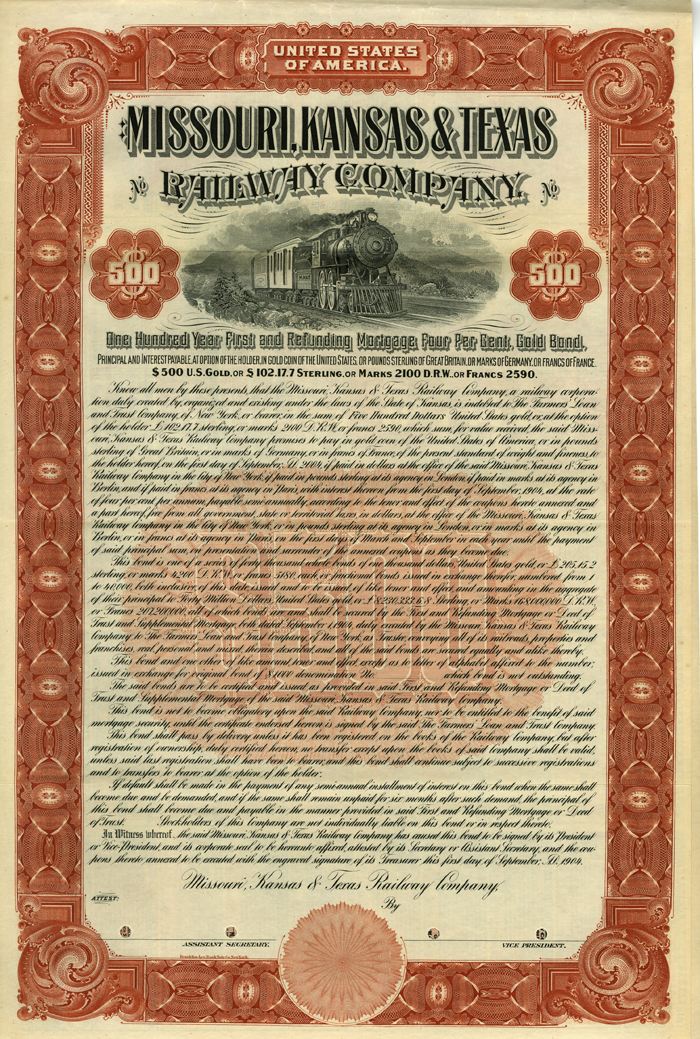 UNITED STATES
OF AMERICA.
MISSOURI, KANSAS & TEXAS
No RAILWAY COMPANY. No
500 500
One Hundred Year First and Refunding Mortgage, Four Per Cent, Gold Bond,
PRINCIPAL AND INTEREST PAYABLE, AT OPTION OF THE HOLDER, IN GOLD COIN OF THE UNITED STATES, OR POUNDS STERLING OF GREAT BRITAIN, OR MARKS OF GERMANY, OR FRANCS OF FRANCE.
$500 U.S. GOLD, OR £102.17.7 STERLING, OR MARKS 2100 D.R.W. OR FRANCS 2590.
Know all men by these presents, that the Missouri, Kansas & Texas Railway Company, a railway corpora-
tion duly created, organized and existing under the laws of the State of Kansas, is indebted to The Farmers' Loan
and Trust Company, of New York, or bearer, in the sum of Five Hundred Dollars United States gold, or, at the option
of the holder £102.17.7 sterling, or marks 2100 D.R.W. or francs 2590, which sum, for value received, the said Miss-
ouri, Kansas & Texas Railway Company promises to pay in gold coin of the United States of America, or in pounds
sterling of Great Britain, or in marks of Germany, or in francs of France, of the present standard of weight and fineness, to
the holder hereof, on the first day of September, A.D. 2004, if paid in dollars at the office of the said Missouri, Kansas & Texas
Railway Company in the city of New York, if paid in pounds sterling at its agency in London, if paid in marks at its agency in
Berlin, and if paid in francs at its agency in Paris, with interest thereon from the first day of September, 1904, at the rate
of four per cent per annum, payable semi-annually, according to the tenor and effect of the coupons hereto annexed and
a part hereof, free from all government, state or territorial taxes, in dollars, at the office of the Missouri, Kansas & Texas
Railway Company in the City of New York, or in pounds sterling at its agency in London, or in marks at its agency in
Berlin, or in francs at its agency in Paris, on the first days of March and September in each year until the payment
of said principal sum, on presentation and surrender of the annexed coupons as they become due.
This bond is one of a series of forty thousand whole bonds of one thousand dollars, United States gold, or £205.15.2
sterling, or marks 4200 D.R.W. or francs 5180 each, or fractional bonds issued in exchange therefor, numbered from 1
to 40,000, both inclusive, of this date, issued and to be issued, of like tenor and effect, and amounting in the aggregate
of their principal to Forty Million Dollars, United States gold, or £8,230,333.6.8 Sterling, or Marks 168,000,000 D.R.W.
or Francs 207,200,000, all of which bonds are and shall be secured by the First and Refunding Mortgage or Deed of
Trust and Supplemental Mortgage, both dated September 1, 1904, duly executed by the Missouri, Kansas & Texas Railway
Company to The Farmers' Loan and Trust Company of New York, as Trustee, conveying all of its railroads, properties and
franchises, real, personal and mixed, therein described, and all of the said bonds are secured equally and alike thereby.
This bond and one other of like amount, tenor and effect, except as to letter of alphabet affixed to the number,
issued in exchange for original bond of $1000 denomination No. which bond is not outstanding.
The said bonds are to be certified and issued as provided in said First and Refunding Mortgage or Deed of
Trust and Supplemental Mortgage of the said Missouri, Kansas & Texas Railway Company.
This bond is not to become obligatory upon the said Railway Company, nor to be entitled to the benefit of said
mortgage security, until the certificate endorsed hereon is signed by the said The Farmers' Loan and Trust Company.
This bond shall pass by delivery unless it has been registered on the books of the Railway Company, but after
registration of ownership, duly certified hereon, no transfer except upon the books of said Company shall be valid,
unless said last registration shall have been to bearer, and this bond shall continue subject to successive registrations
and to transfers to bearer at the option of the holder.
If default shall be made in the payment of any semi-annual installment of interest on this bond when the same shall
become due and be demanded, and if the same shall remain unpaid for six months after such demand, the principal of
this bond shall become due and payable in the manner provided in said First and Refunding Mortgage or Deed
of Trust. Stockholders of this Company are not individually liable on this bond or in respect thereto.
In Witness whereof, the said Missouri, Kansas & Texas Railway Company has caused this bond to be signed by its President
or Vice-President, and its corporate seal to be hereunto affixed, attested by its Secretary or Assistant Secretary, and the cou-
pons thereto annexed to be executed with the engraved signature of its Treasurer this first day of September, A.D. 1904.
Missouri, Kansas & Texas Railway Company,
ATTEST:
By
ASSISTANT SECRETARY. VICE PRESIDENT.